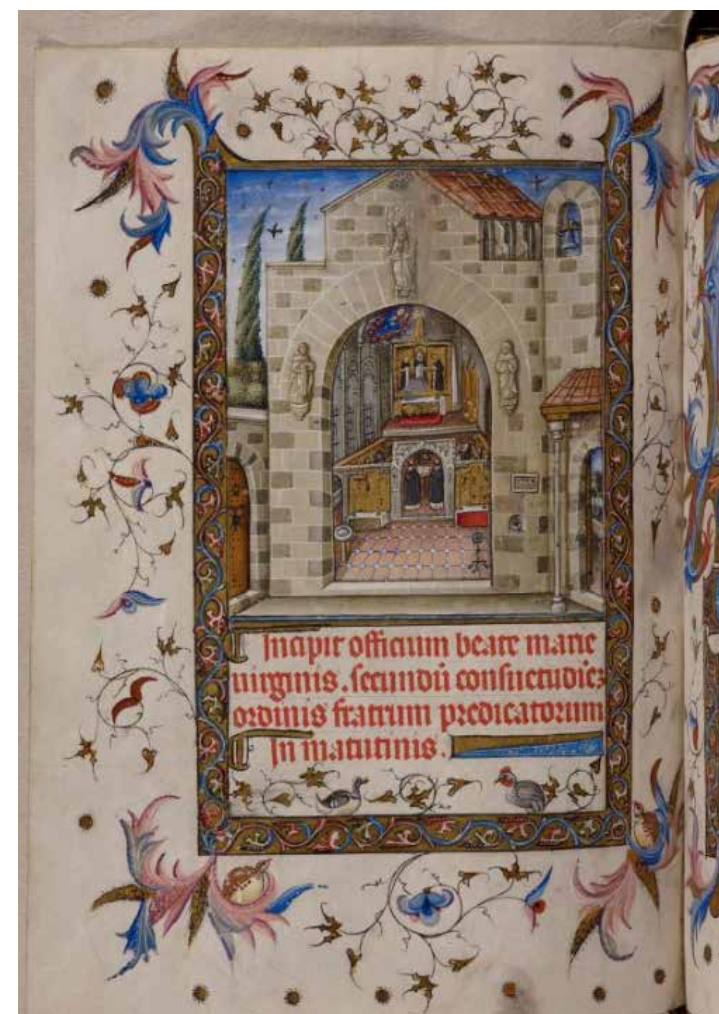 Incipit officium beate marie
uirginis. secundū consuetudieʒ
ordinis fratrum predicatorum
In matutinis.